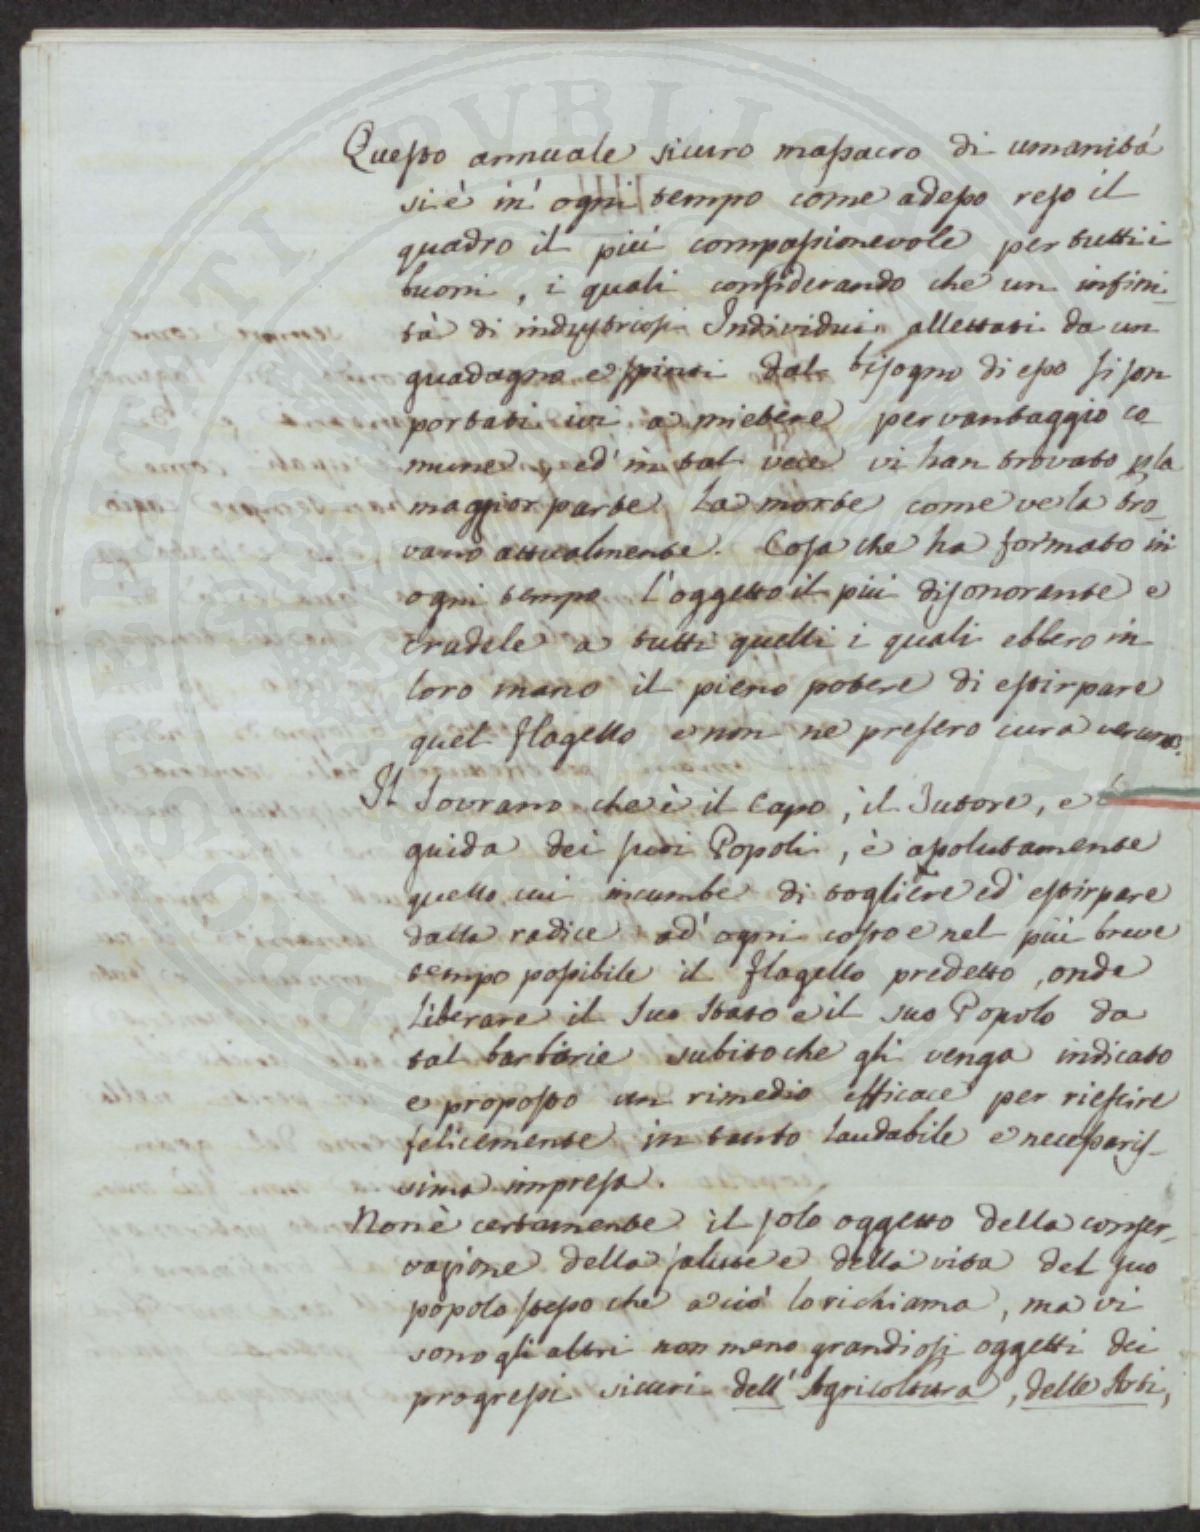 Questo annuale sicuro massacro di umanità
si è in' ogni tempo come adesso reso il
quadro il più compassionevole per tutti i
buoni, i quali considerando che un infini-
tà di industriosi Individui allettati da un
guadagno e spinti dal bisogno di esso si son
portati ivi a mietere per vantaggio co
mune, ed' in tal vece vi han trovato p la
maggior parte la morte come ve la tro-
vano attualmente. Cosa che ha formato in
ogni tempo l'oggetto il più disonorante e
crudele a tutti quelli i quali ebbero in
loro mano il pieno potere di estirpare
quel flagello e non ne presero cura veruna.
Il Sovrano che è il Capo, il Tutore, e la
guida dei suoi Popoli, è assolutamente
quello cui incumbe di togliere ed' estirpare
dalla radice ad' ogni costo e nel più breve
tempo possibile il flagello predetto, onde
liberare il Suo Stato e il suo Popolo da
tal barbarie subito che gli venga indicato
e proposto un rimedio efficace per riescire
felicemente in tanto laudabile e necessaris-
sima impresa.
Non è certamente il solo oggetto della conser-
vazione della salute e della vita del suo
popolo stesso che a ciò lo richiama, ma vi
sono gli altri non meno grandiosi oggetti dei
progressi sicuri dell' Agricoltura, delle Arti,